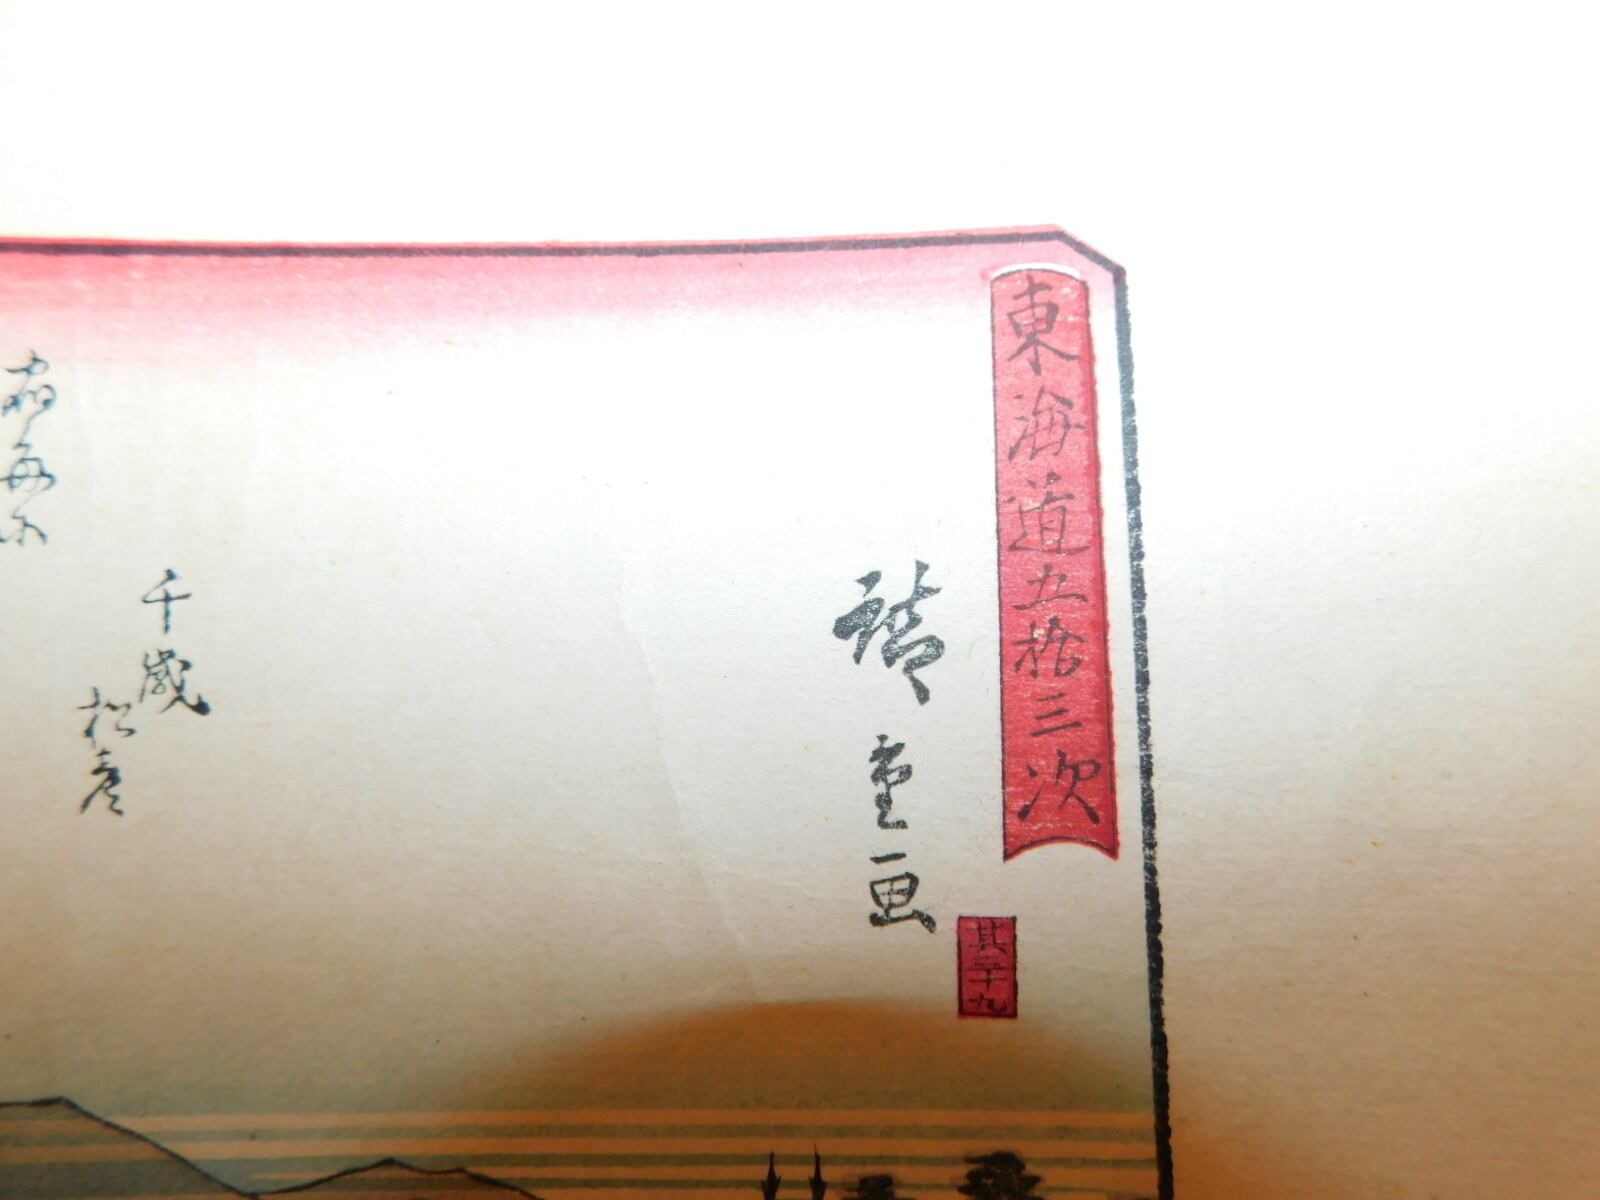 東海道五拾三次
其三十九
廣重画
千歳
松彦